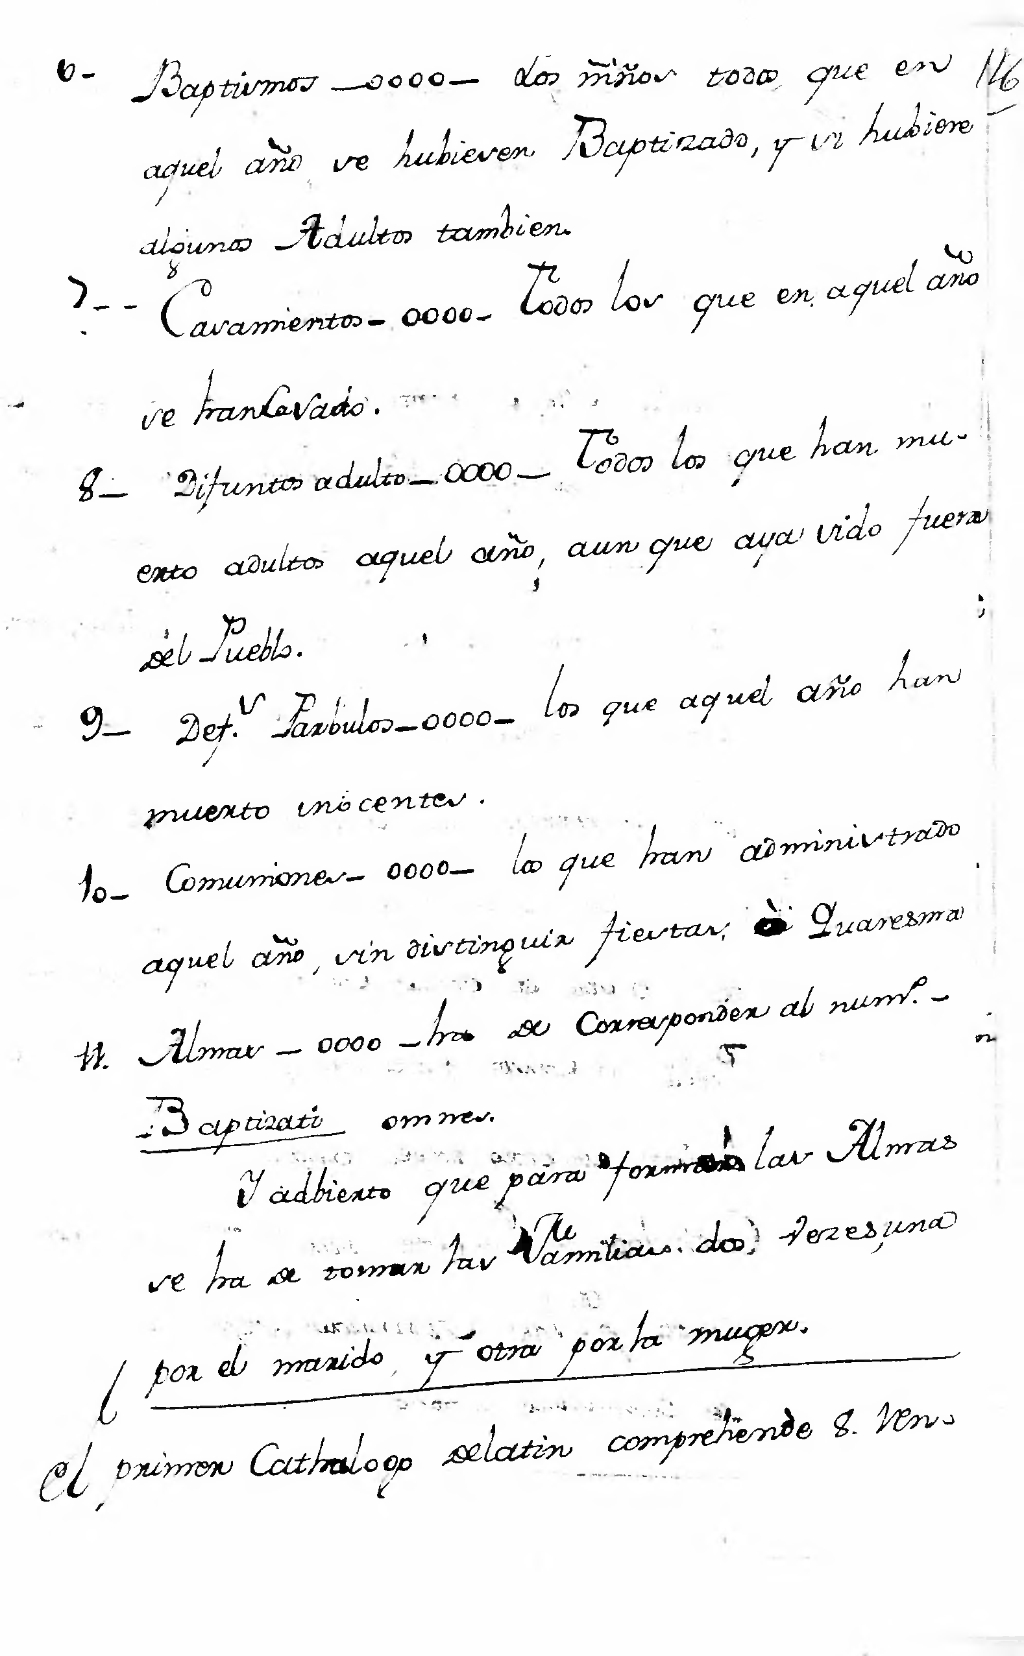 6- Baptismos _oooo_ los niños todos que en 116
aquel año se hubiesen Baptizado, y si hubiere
algunos Adultos tambien.
7-- Casamientos - oooo - Todos los que en aquel año
se han Casado.
8_ Difuntos adulto_ oooo _ Todos los que han mu-
erto adultos aquel año, aun que aya sido fuera
del Pueblo.
9_ Def.s Parbulos_oooo_ los que aquel año han
muerto inocentes.
10_ Comuniones_ oooo_ los que han administrado
aquel año, sin distinguir fiestas, ò Quaresma
11. Almas _ oooo _ ha de Corresponder al num.o -
Baptizati omnes.
Y adbierto que para formar las Almas
se ha de tomar las Familias dos vezes, una
por el marido, y otra por la muger.
El primer Cathalogo delatin comprehende 8. Ren-